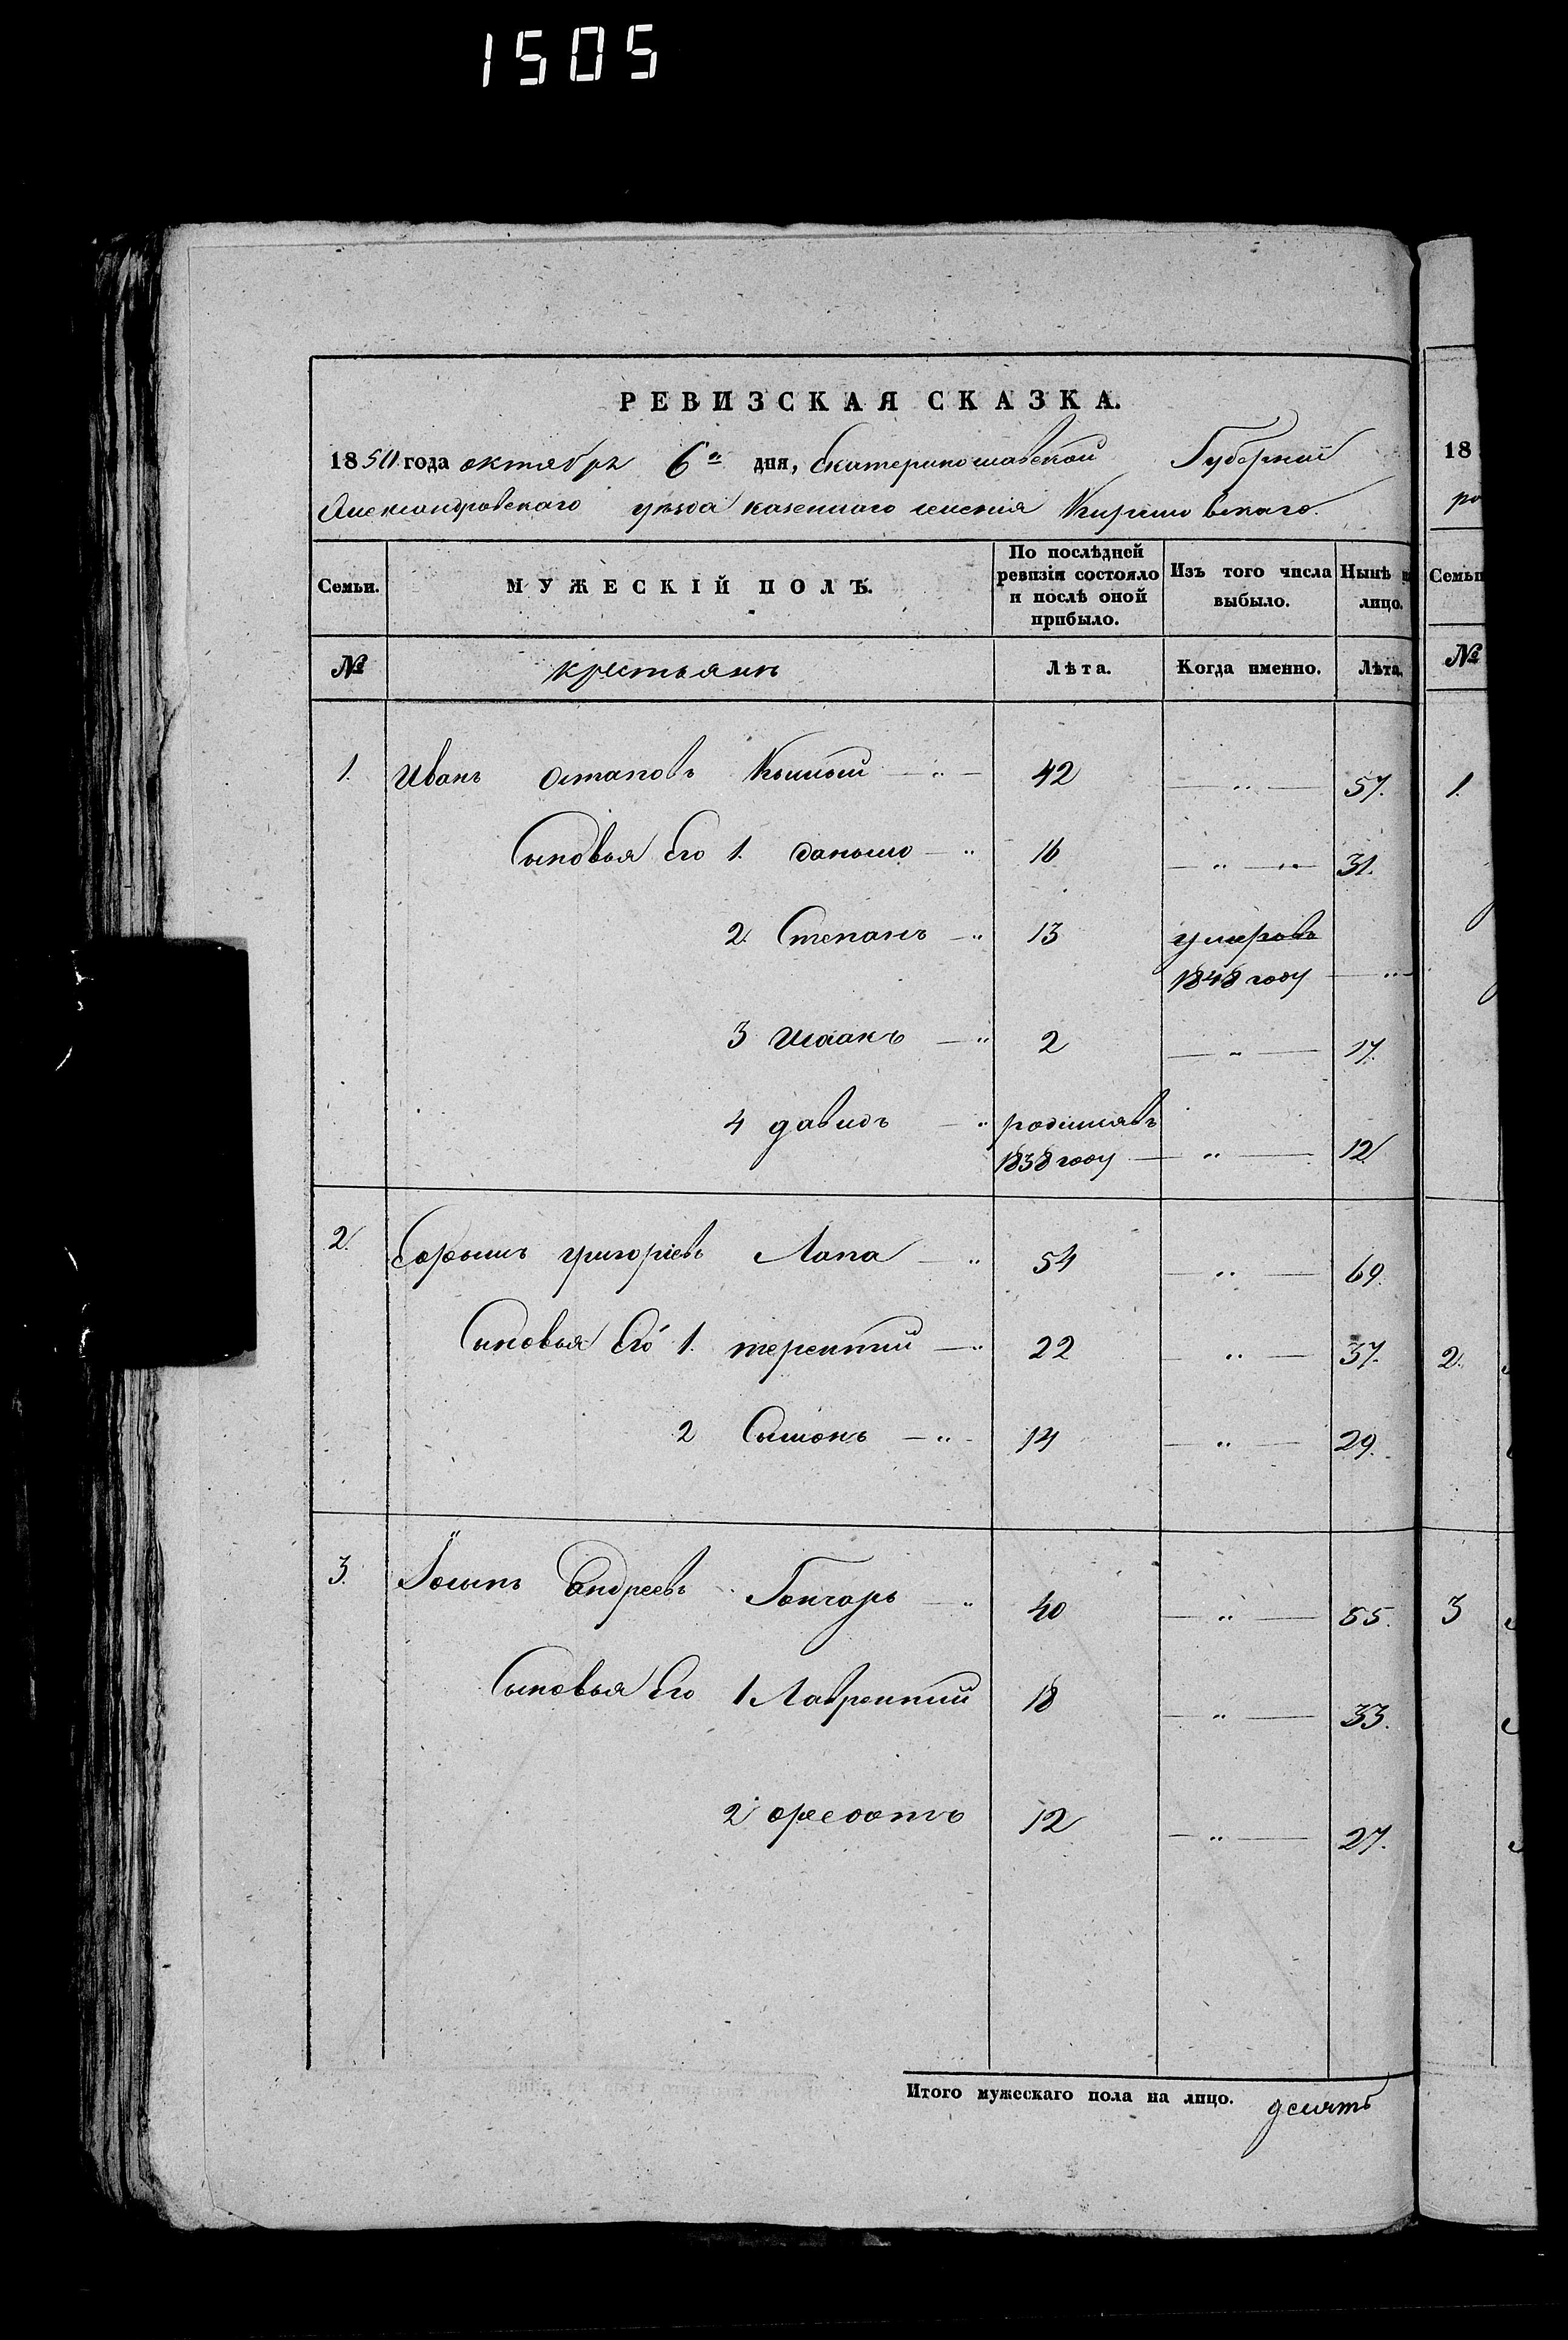 1505
РЕВИЗСКАЯ СКАЗКА.
1850 года октября 6го дня, Екатеринославской Губерніи
Александровскаго уѣзда казеннаго селенія
Семьи. МУЖЕСКІЙ ПОЛЪ. По послѣдней ревизіи состояло и послѣ оной прибыло. Изъ того числа выбыло. Нынѣ лицо.
№ крестьянъ Лѣта. Когда именно. Лѣта.
1. Иванъ Остаповъ 42 57.
Сыновья Его 1. данило 16 31.
2. Степанъ 13 умеръ въ
1848 году
3 Исаакъ 2 17.
4 давидъ родился въ
1838 году 12
2. Ефимъ григоріевъ Лапа 54 69.
Сыновья Его 1. терентий 22 37.
2 Симонъ 14 29.
3. Іосипъ Андреевъ Гончаръ 40 55.
Сыновья Его 1 Лаврентий 18 33.
2 12 27.
Итого мужескаго пола на лицо. десять
18
Семьи
№
1.
2.
3